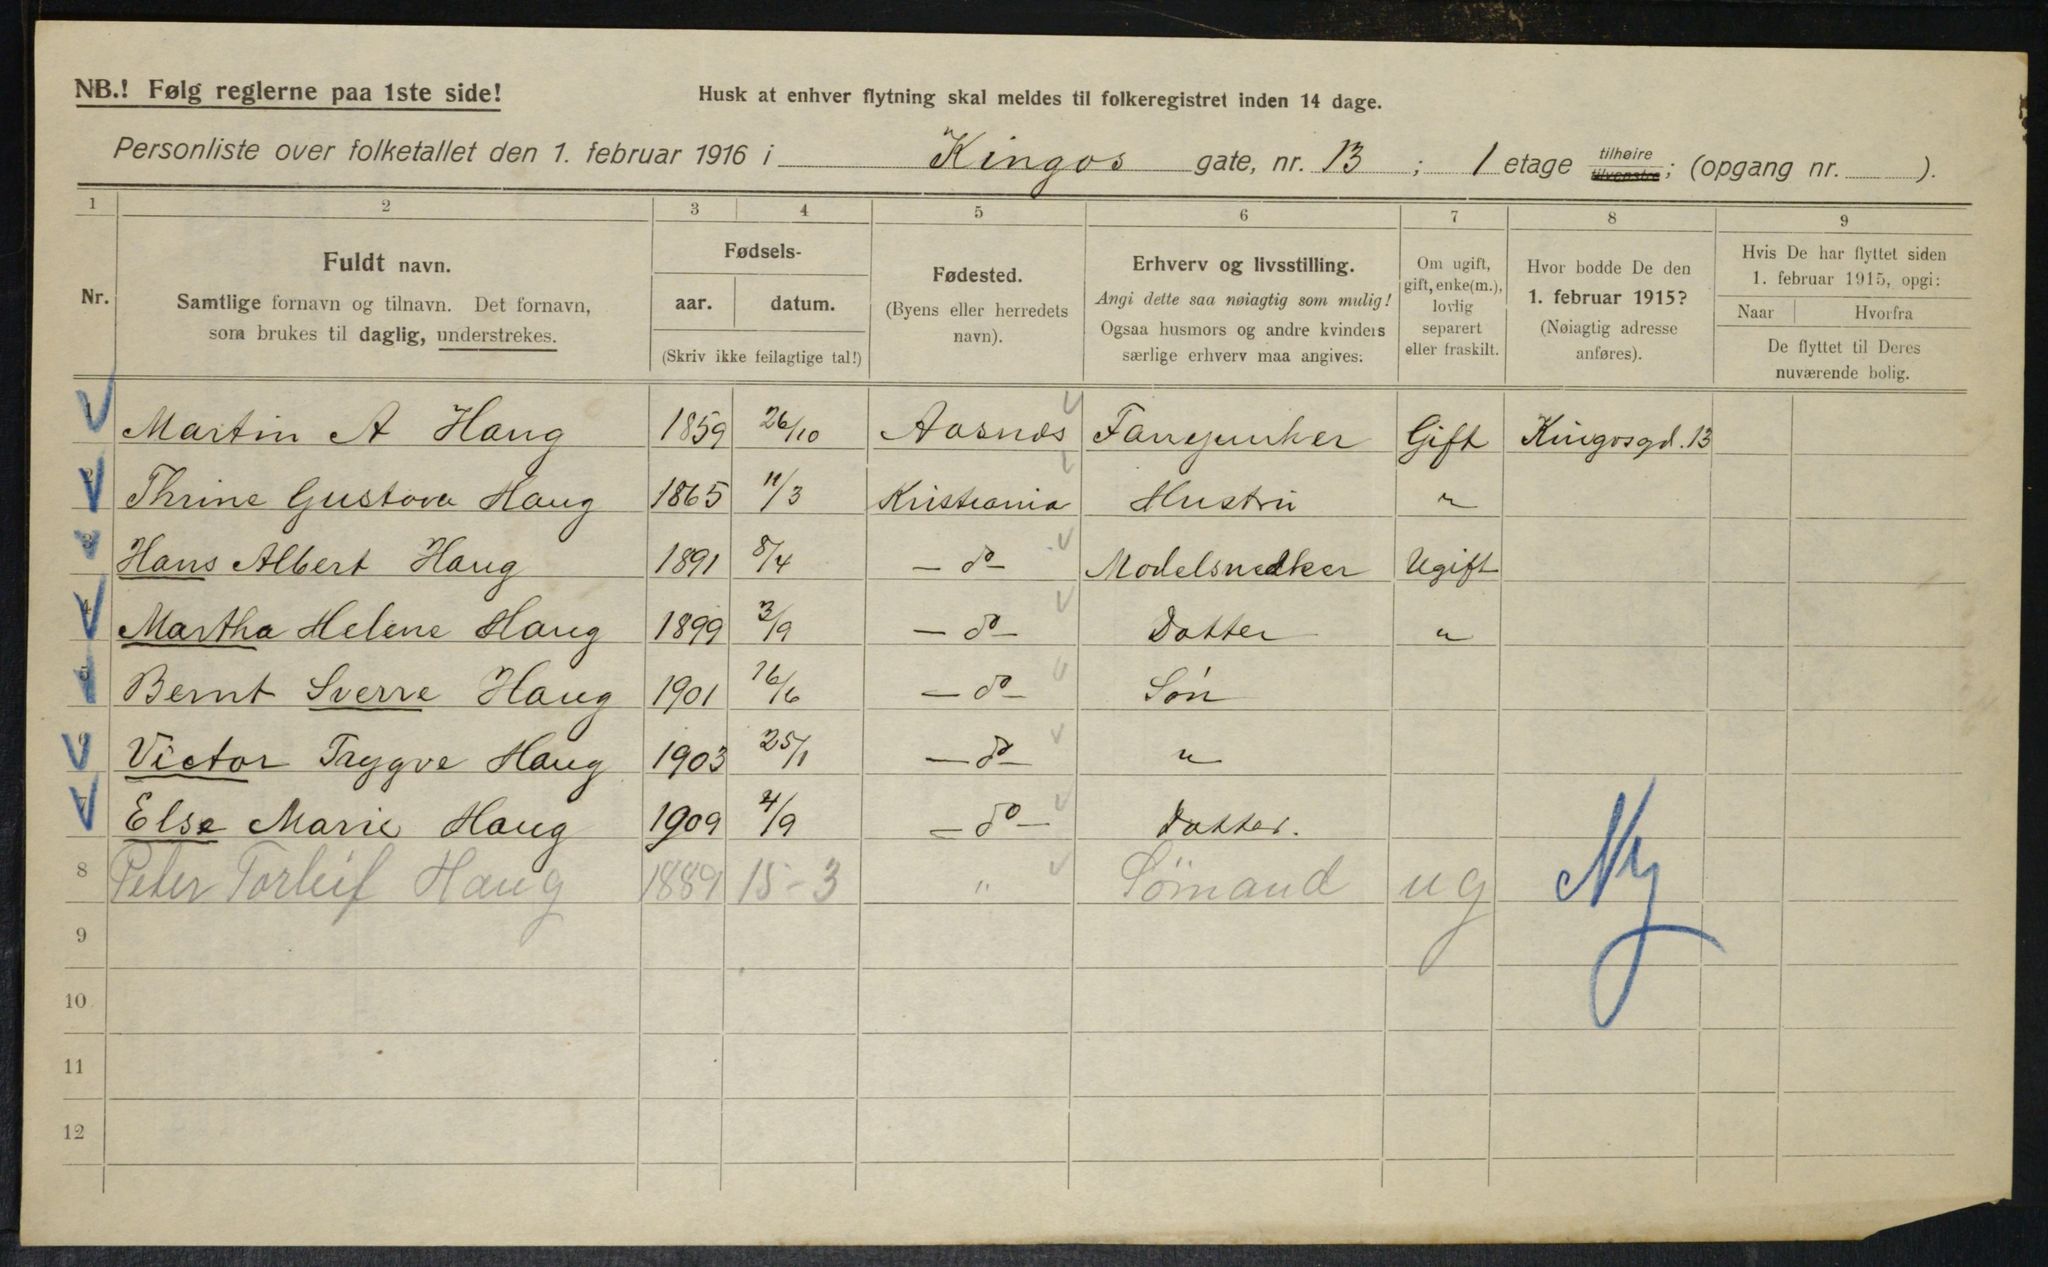 NB.! Følg reglerne paa 1ste side!
Husk at enhver flytning skal meldes til folkeregistret inden 14 dage.
Personliste over folketallet den 1. februar 1916 i Kingos gate, nr. 13 ; 1 etage tilhøire tilvenstre; (opgang nr. ).
1 2 3 4 5 6 7 8 9
Nr.
Fuldt navn.
Samtlige fornavn og tilnavn. Det fornavn,
som brukes til daglig, understrekes.
Fødsels-
aar. datum.
(Skriv ikke feilagtige tal!)
Fødested.
(Byens eller herredets
navn).
Erhverv og livsstilling.
Angi dette saa nøiagtig som mulig!
Ogsaa husmors og andre kvinders
særlige erhverv maa angives.
Om ugift,
gift, enke(m.),
lovlig
separert
eller fraskilt.
Hvor bodde De den
1. februar 1915?
(Nøiagtig adresse
anføres).
Hvis De har flyttet siden
1. februar 1915, opgi:
Naar Hvorfra
De flyttet til Deres
nuværende bolig.
1 Martin A Haug 1859 26/10 Aasnes Gift Kingosgd. 13
2 Thrine Gustava Haug 1865 11/3 Kristiania Hustru "
3 Hans Albert Haug 1891 8/4 — do — Modelsnedker Ugift
4 Martha Helene Haug 1899 3/9 — do — Datter "
5 Bernt Sverre Haug 1901 16/6 — do — Søn
6 Victor Trygve Haug 1903 25/1 — do — "
7 Else Marie Haug 1909 4/9 — do — Datter.
8 Peter Torleif Haug 1889 15-3 " Sømand ug Ny
9
10
11
12